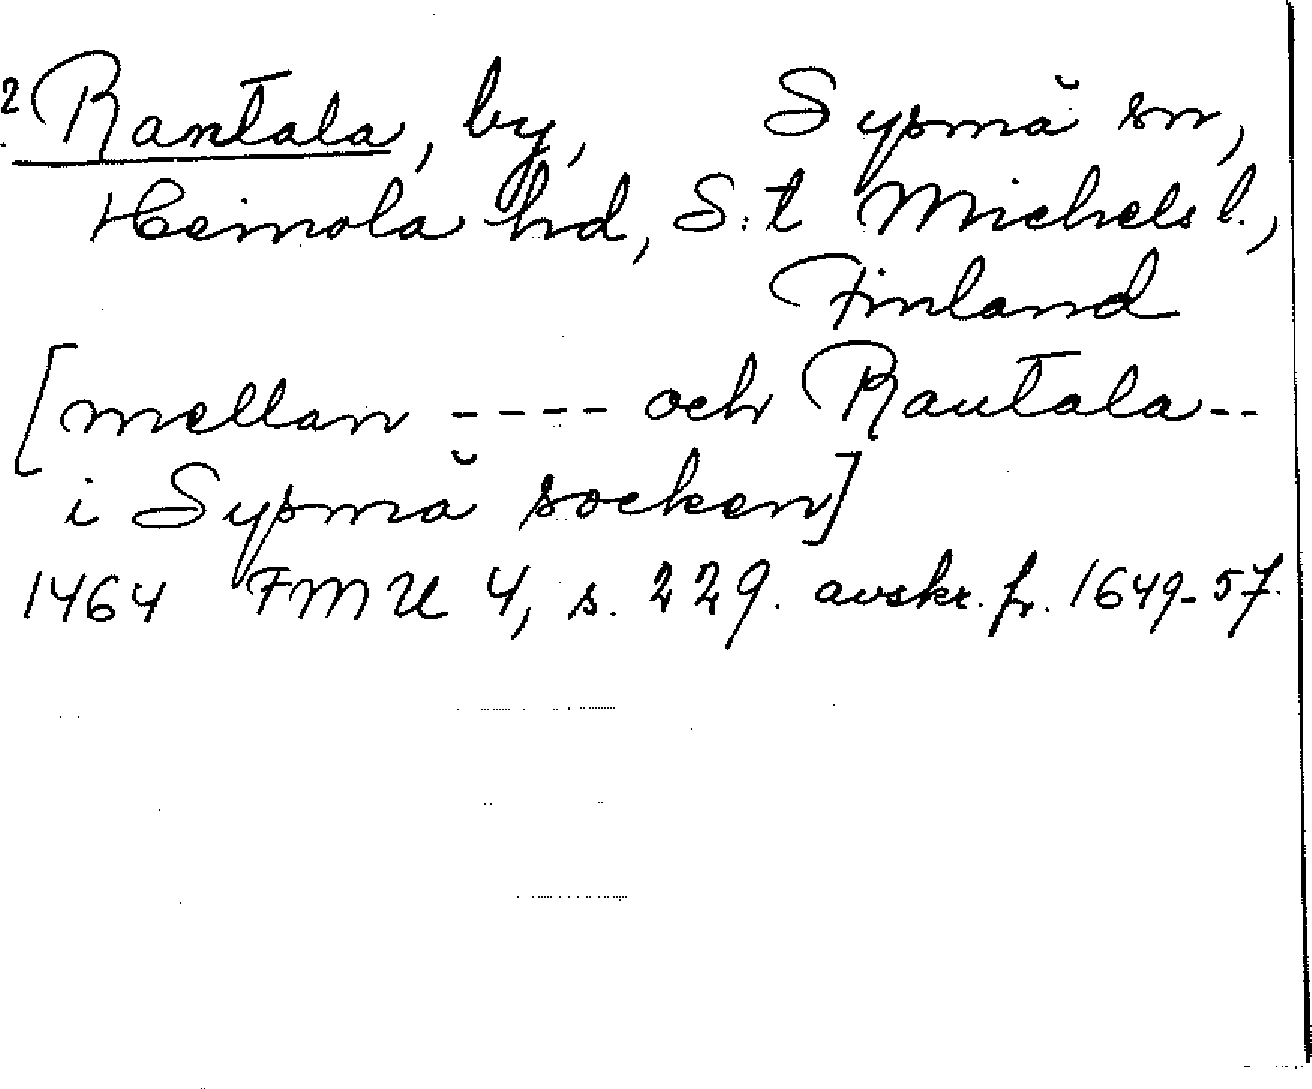 2. Rantala, by, Sysmä sn,
Heinola hd, S:t Michels l.,
Finland
[mellan ---- och Rautala--
i Sysmä socken]
1464 FMU 4, s. 229. avskr. fr. 1649-57.